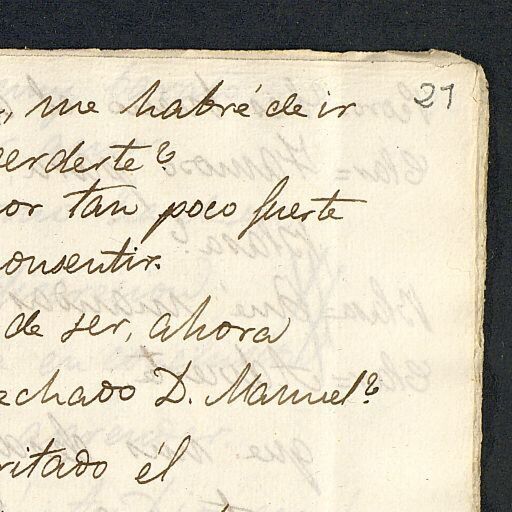 21
me habré de ir
perderte?
or tan poco fuerte
consentir.
de ser, ahora
echado D. Manuel?
ritado él